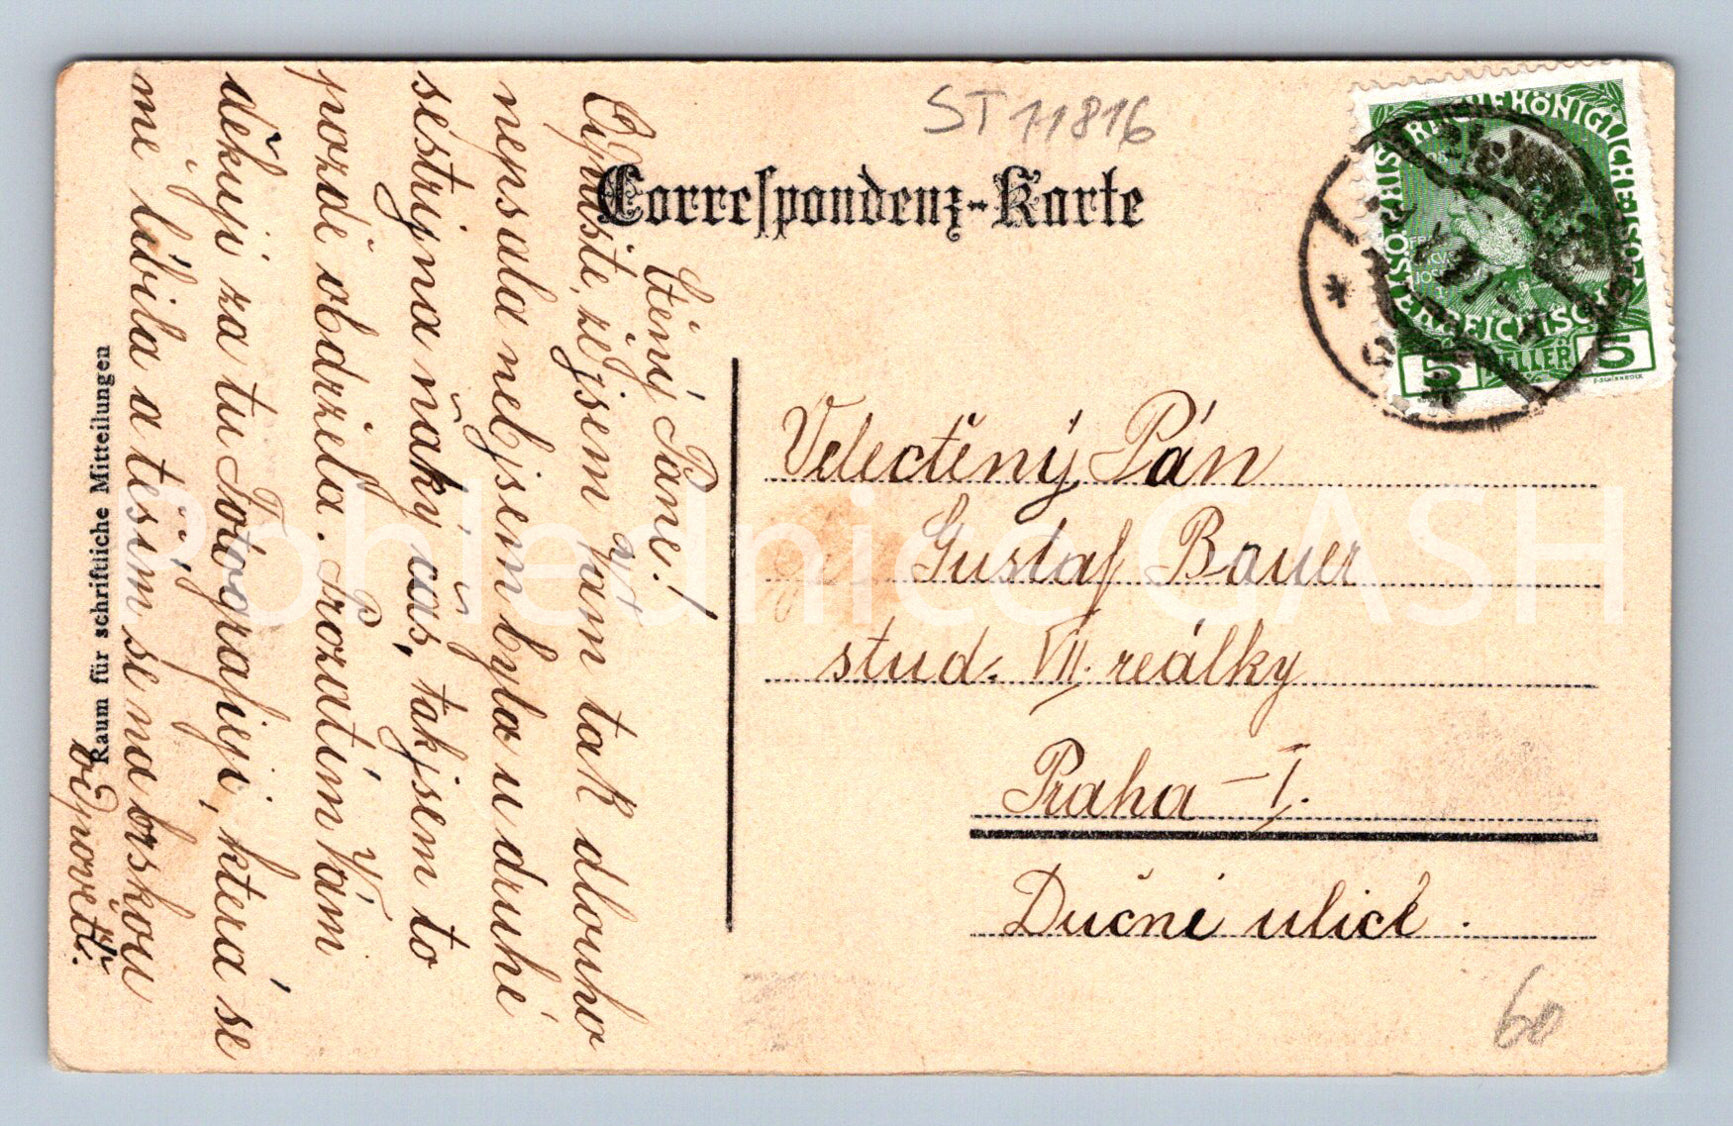 ST 11816
Correspondenz-Karte
Ctěný Pane!
Odpusťte, že jsem Vám tak dlouho
nepsala neb jsem byla u druhé
sestry na ňáký čas, tak jsem to
pozdě obdržela. Prozatím Vám
děkuji za tu Fotografiji, která se
mě líbila a těším se na brskou
odpověď.
Raum für schriftliche Mitteilungen
Velectěný Pán
Gustaf Bauer
stud. VII. reálky
Praha - I.
Dučni ulicé.
60
KAISERLICHE KÖNIGLICHE ÖSTERREICHISCHE POST
5 HELLER 5
Pohlednice GASH